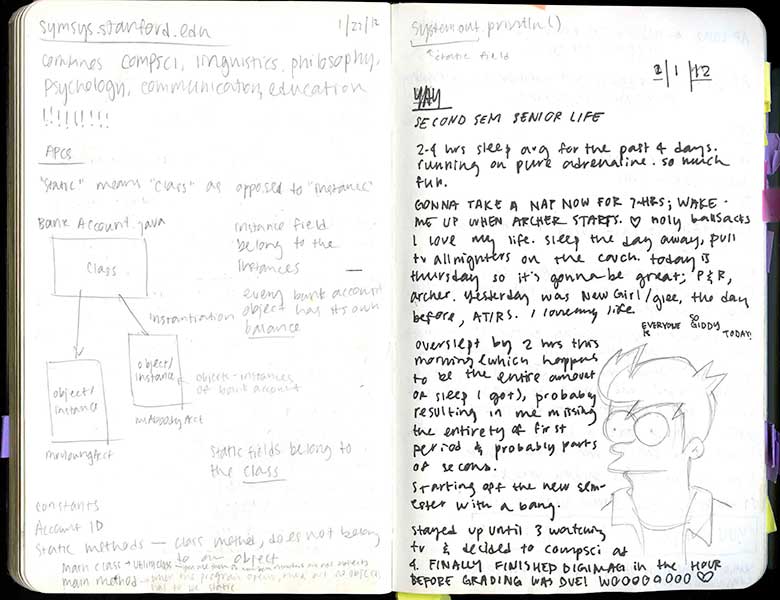 symsys.stanford.edu
1/27/12
combines compsci, linguistics, philosophy,
psychology, communication, education
!!!!!!!!!
APCS
"static" means "class" as opposed to "instance"
Bank Account.java
class
instance field
belong to the
instances
every bank account
object has its own
balance
instantiation
object/
instance
object/
instance
objects = instances
of bank account
static fields belong to
the class
constants
Account ID
Static methods — class method, does not belong
to an object
main class → utility class
main method →
has to be static
System.out.println()
static field
2/1/12
YAY
SECOND SEM SENIOR LIFE
2-4 hrs sleep avg for the past 4 days.
running on pure adrenaline. so much
fun.
GONNA TAKE A NAP NOW FOR 7 HRS; WAKE
ME UP WHEN ARCHER STARTS. ♡ holy ballsacks
I love my life. sleep the day away, pull
tv allnighters on the couch. today is
thursday so it's gonna be great; P&R,
archer. yesterday was New Girl/glee, the day
before, AT/RS. I love my life
EVERYONE IS SO GIDDY TODAY!
overslept by 2 hrs this
morning (which happens
to be the entire amount
of sleep I got), probably
resulting in me missing
the entirety of first
period & probably parts
of second.
starting off the new sem-
ester with a bang.
stayed up until 3 watching
tv & decided to compsci at
4. FINALLY FINISHED DIGIMAG in the HOUR
BEFORE GRADING WAS DUE! WOOOOOOOO ♡